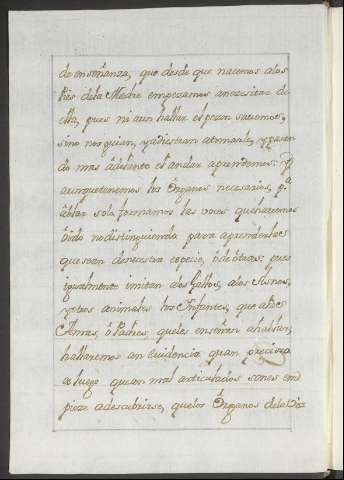 de enseñanza, que desde que nacemos alos
pies dela Madre empezamos anecesitar de
ella, pues ni aun hallar el pezon sabemos,
sino nos guian, yadiestran atomarle, ypasan
do mas adelante el andar aprendemos: Y
aunquetenemos los Organos necesarios, pª
ablar solo formamos las voces quehavemos
oido nodistinguiendo para aprenderlas
quesean denuestra especie, ò de otras: pues
igualmente imitan alos Gallos, alos Asnos,
yotros animales los Infantes, que alas
Amas, ò Padres, queles enseñan ahablar,
hallaremos an evidencia quan precisa
es luego quecon mal articulados sones em
pieze adescubrirse, quelos Organos dela Voz